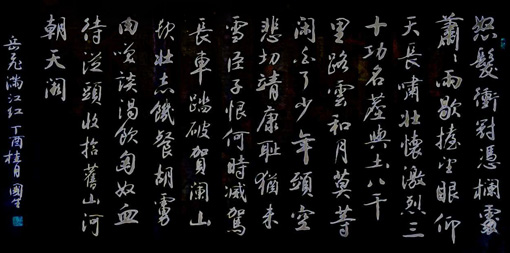 怒髮衝冠憑欄處
蕭〻雨歇擡望眼仰
天長嘯壯懷激烈三
十功名塵與土八千
里路雲和月莫等
閑白了少年頭空
悲切靖康恥猶未
雪臣子恨何時滅駕
長車踏破賀蘭山
缺壯志饑餐胡虜
肉笑談渴飲匈奴血
待從頭收拾舊山河
朝天闕
岳飛滿江紅 丁酉桂月 國生